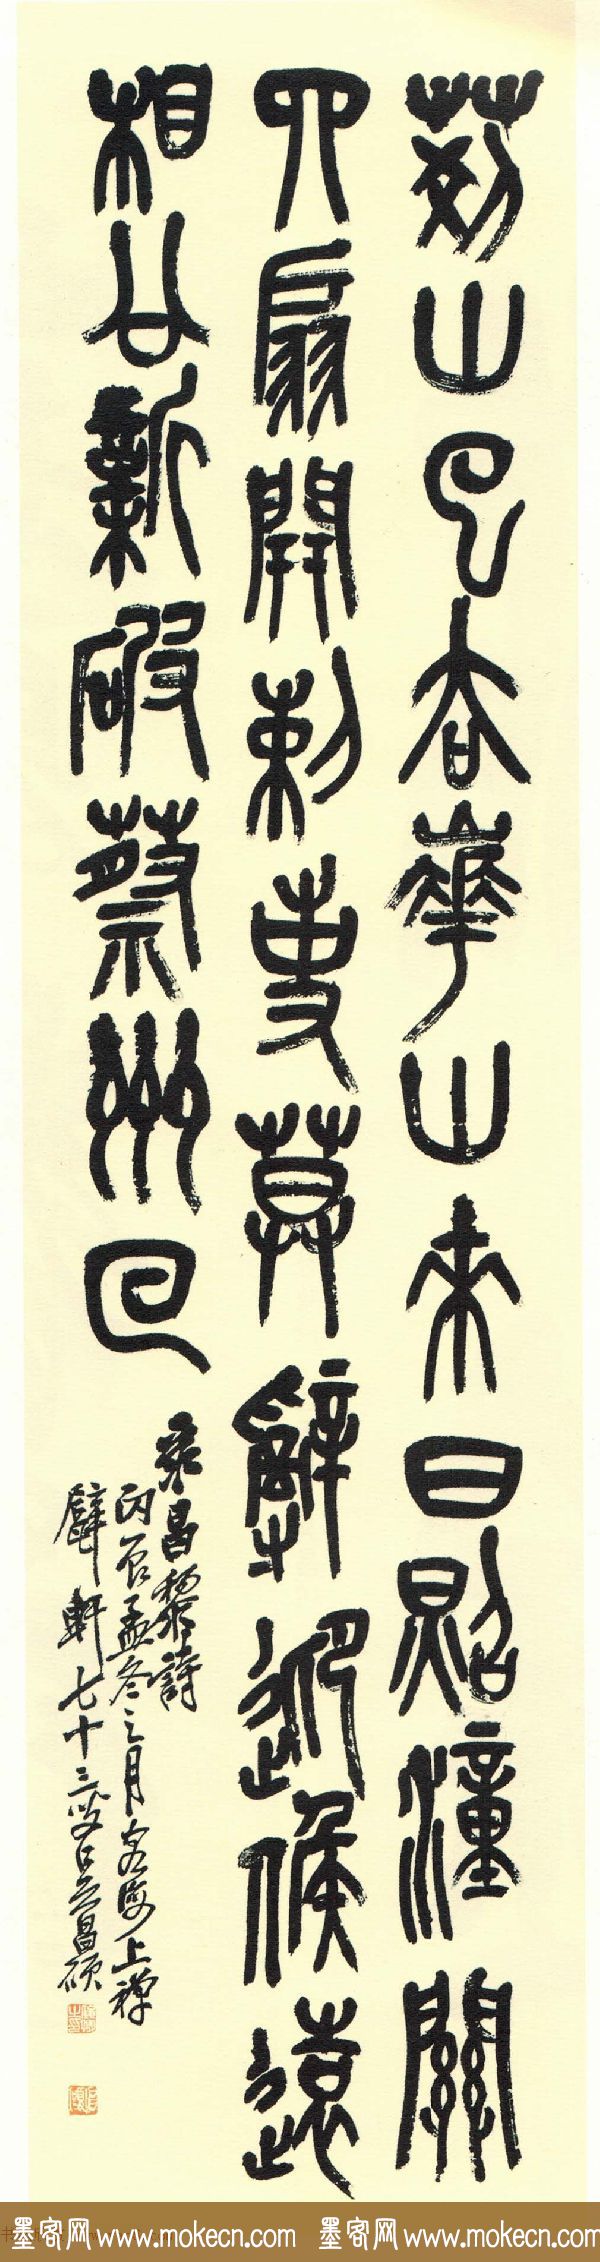 荊山已去華山來日照潼關
四扇開刺史莫辭迎候遠
相公新破蔡州回
彔昌黎詩
丙辰孟冬之月客海上禪
甓軒七十三叟吳昌碩
墨客网 www.mokecn.com 墨客网 www.mokecn.com